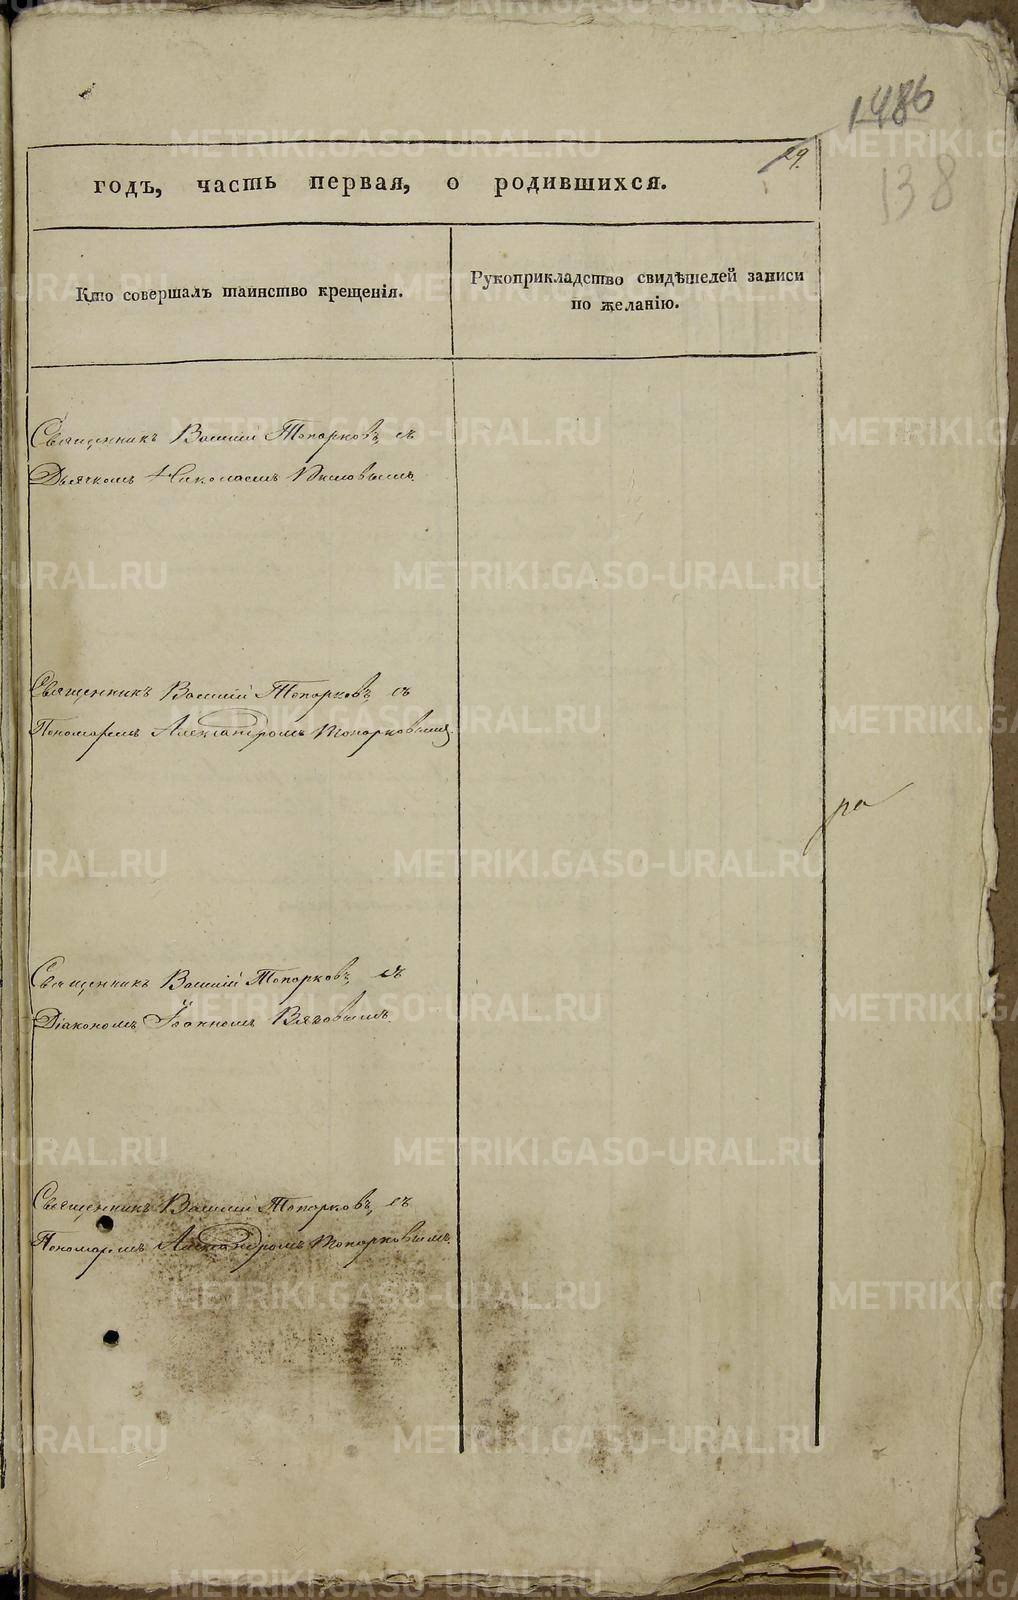 1486
138
29.
годъ, часть первая, о родившихся.
Кто совершалъ таинство крещенія.
Рукоприкладство свидѣтелей записи
по желанію.
Священникъ Василій Топорковъ, съ
Дьячкомъ Николаемъ
Священникъ Василій Топорковъ, съ
Пономаремъ Александромъ Топорковымъ.
ра
Священникъ Василій Топорковъ, съ
Діакономъ Іоанномъ
Священникъ Василій Топорковъ, съ
Пономаремъ Александромъ Топорковымъ.
METRIKI.GASO-URAL.RU